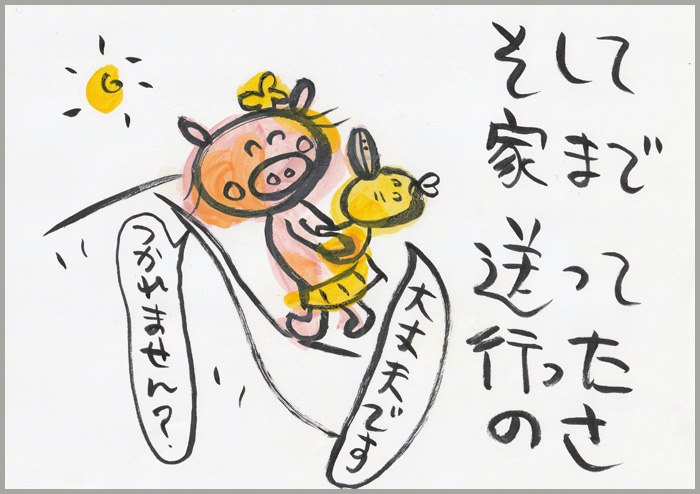 そして
家まで
送って
行った
のさ
つかれません?
大丈夫です